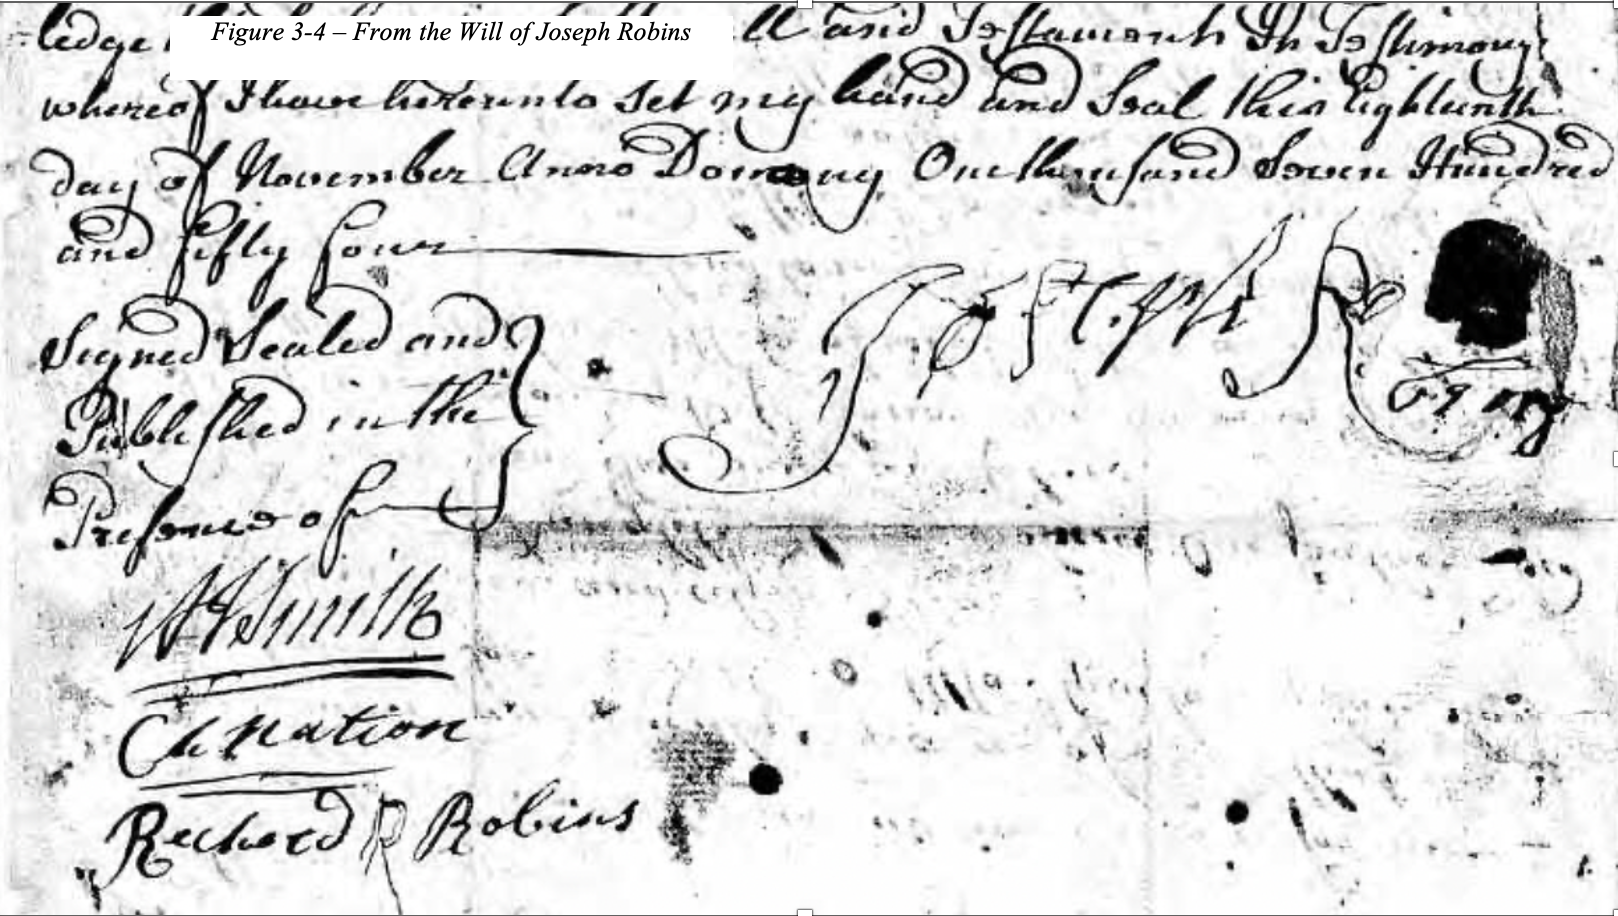 Figure 3-4 – From the Will of Joseph Robins
ledge ll and Testament In Testimony
whereof I have hereunto Set my hand and Seal this Eighteenth
day of November Anno Domony One thousand Seven Hundred
and fifty four
Signed Sealed and
Published in the
Presence of
Joseph R
Smith
Ch Nation
Rechard R Robins